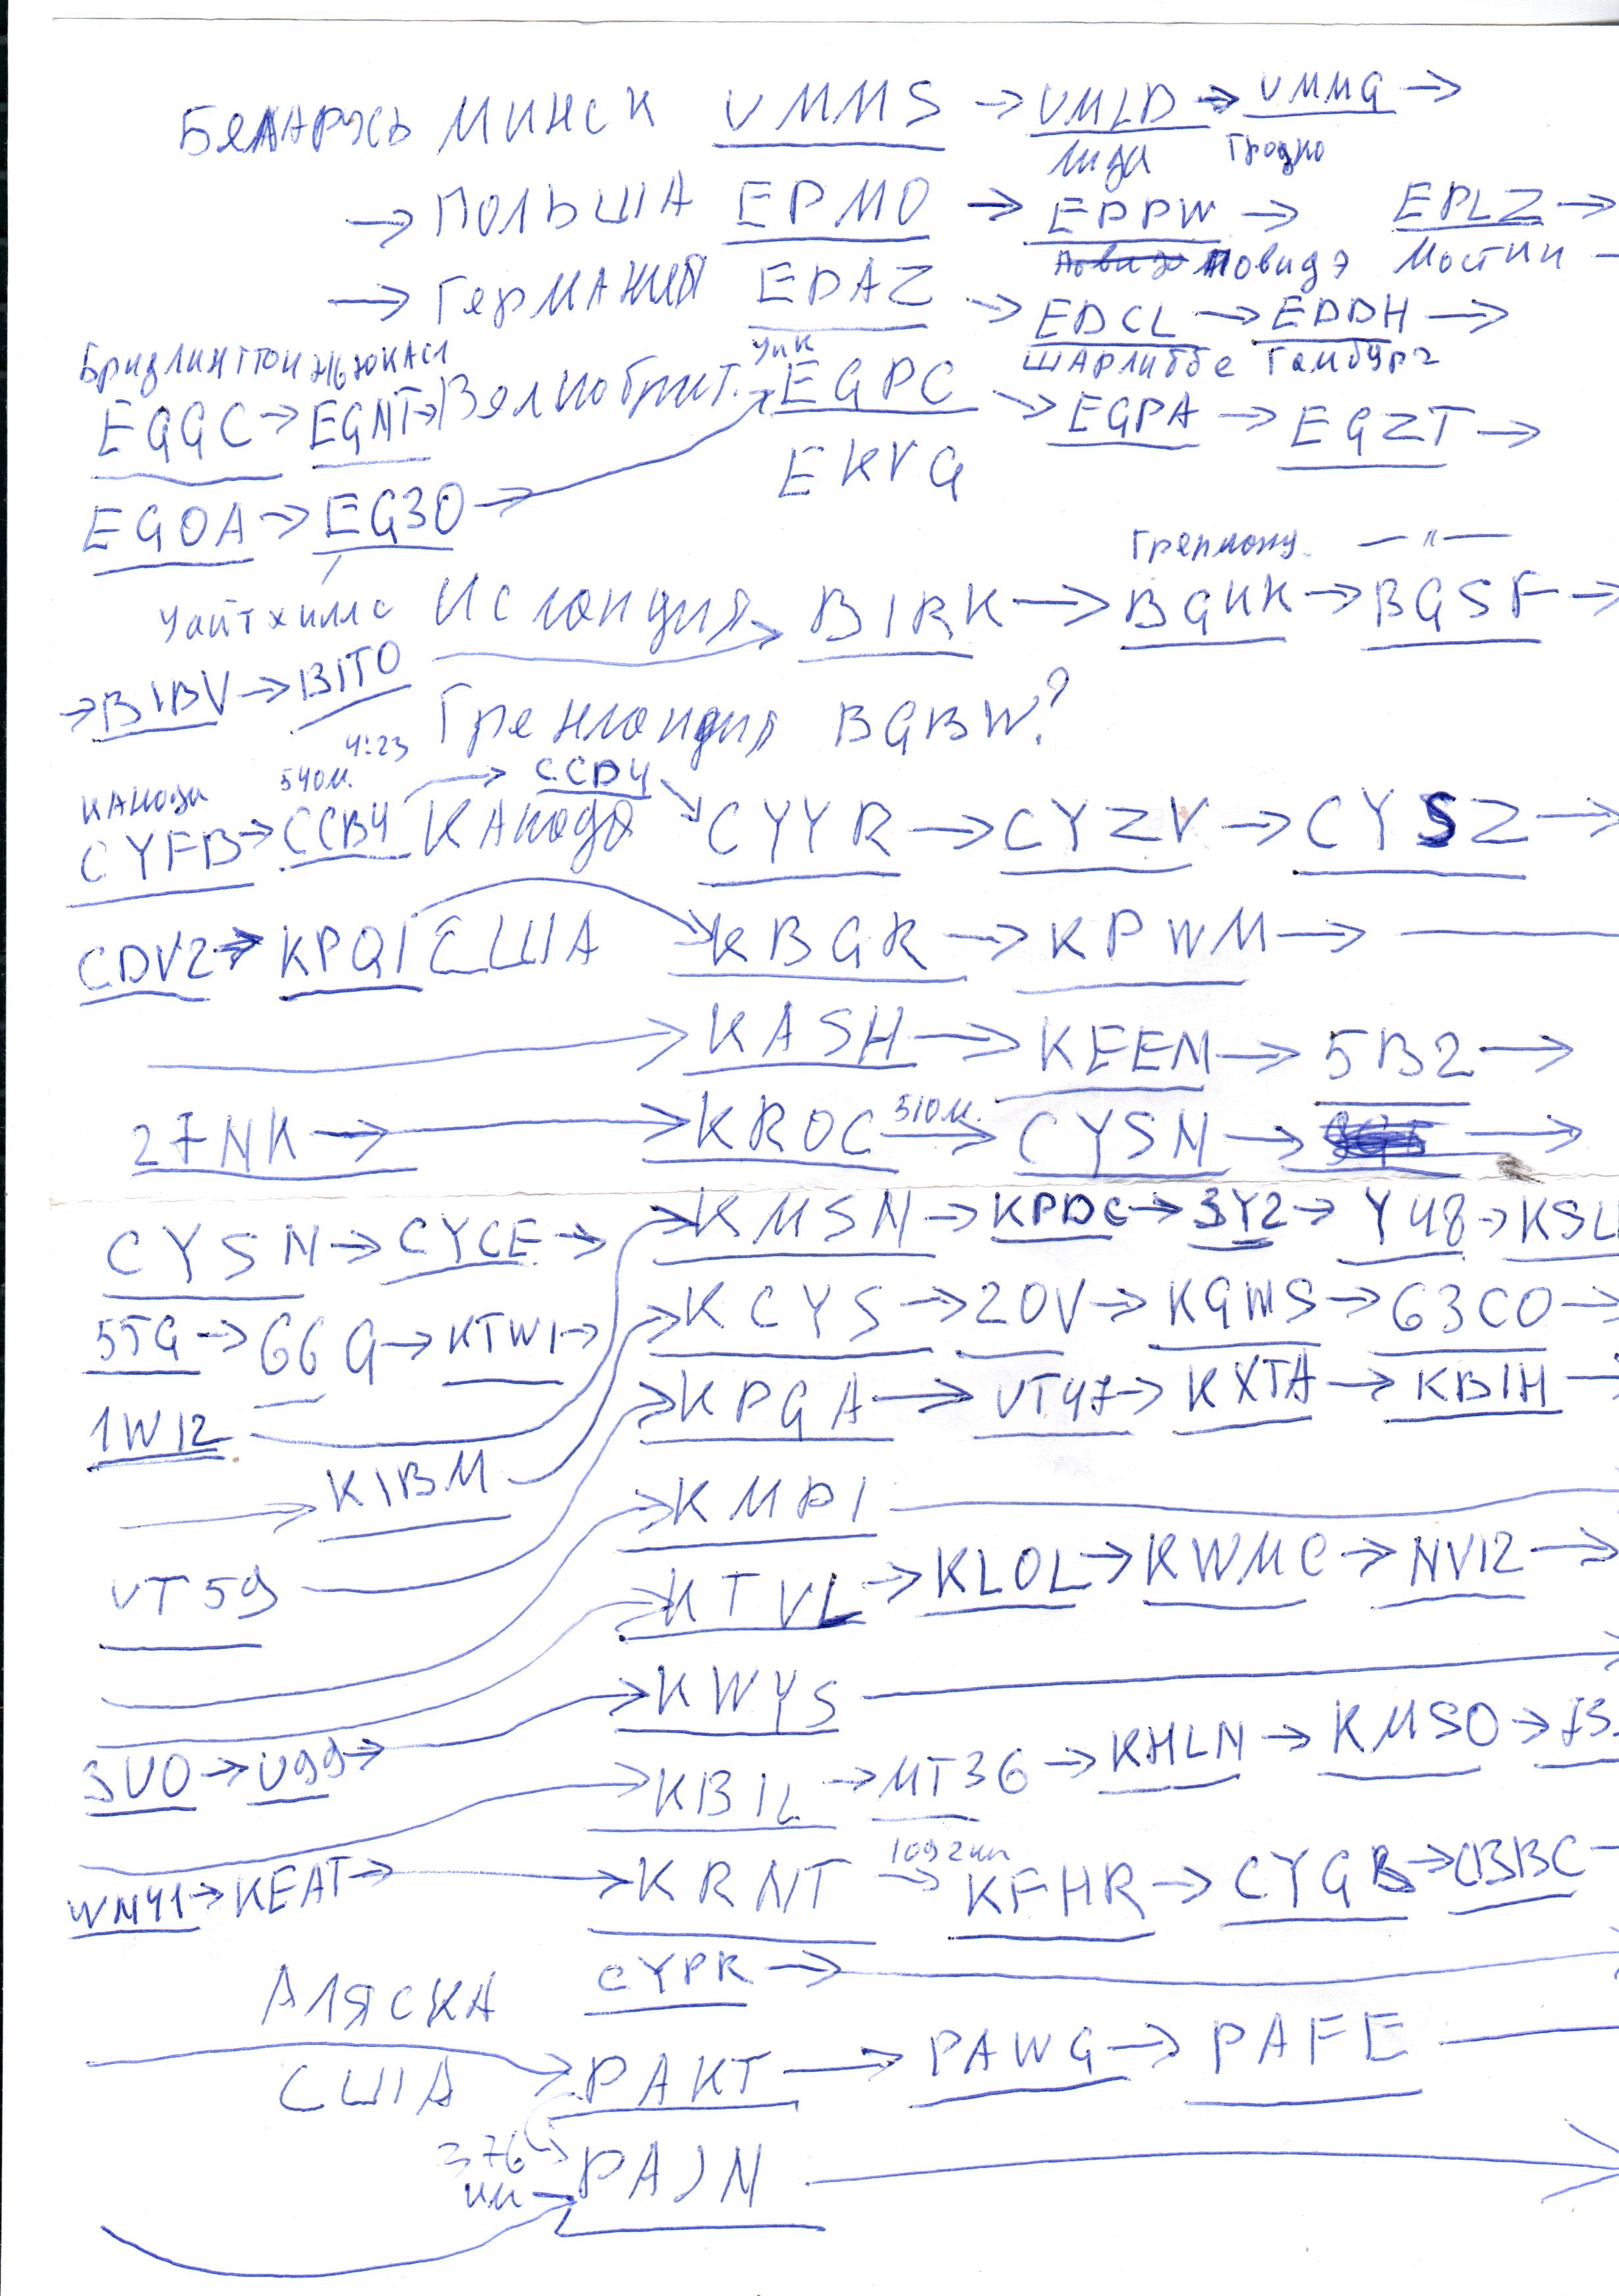 Беларусь Минск UMMS → UMLD → UMMG →
Лида Гродно
→ Польша EPMO → EPPW → EPLZ →
Повидз Повидэ Мостки
→ Германия EDAZ → EDCL → EDDH →
Бридлингтон Ньюкасл Уик Шарлиббе Гамбург
EGGC → EGNT → Великобрит. → EGPC → EGPA → EGZT →
EKVG
EGOA → EG3O →
Гренланд. —"—
Уайтхиллс Исландия → BIRK → BGKK → BGSF →
→ BIBV → BITO
Гренландия BGBW?
4:23
Канада 540м. → CCD4
CYFB → CCB4 Канада CYYR → CYZV → CYSZ →
CDV2 → KPQI США KBGR → KPWM →
→ KASH → KEEN → 5B2 →
510м.
27NK → → KROC → CYSN → →
CYSN → CYCE → KMSN → KPDC → 3Y2 → Y48 → KSL
5TG → 66G → KTWI → KCYS → 20V → KGWS → 63CO →
1W12 KPGA → UT47 → KXTA → KBIH →
→ KIBM → KMPI
UT59 → KTVL → KLOL → KWMC → NV12 →
→ KWYS →
3U0 → U99 → → KBIL → MT36 → KHLN → KMSO → 73
1092км
WN41 → KEAT → → KRNT → KFHR → CYGB → CBBC
CYPR →
Аляска
США → PAKT → PAWG → PAFE
376
км → PAJN →